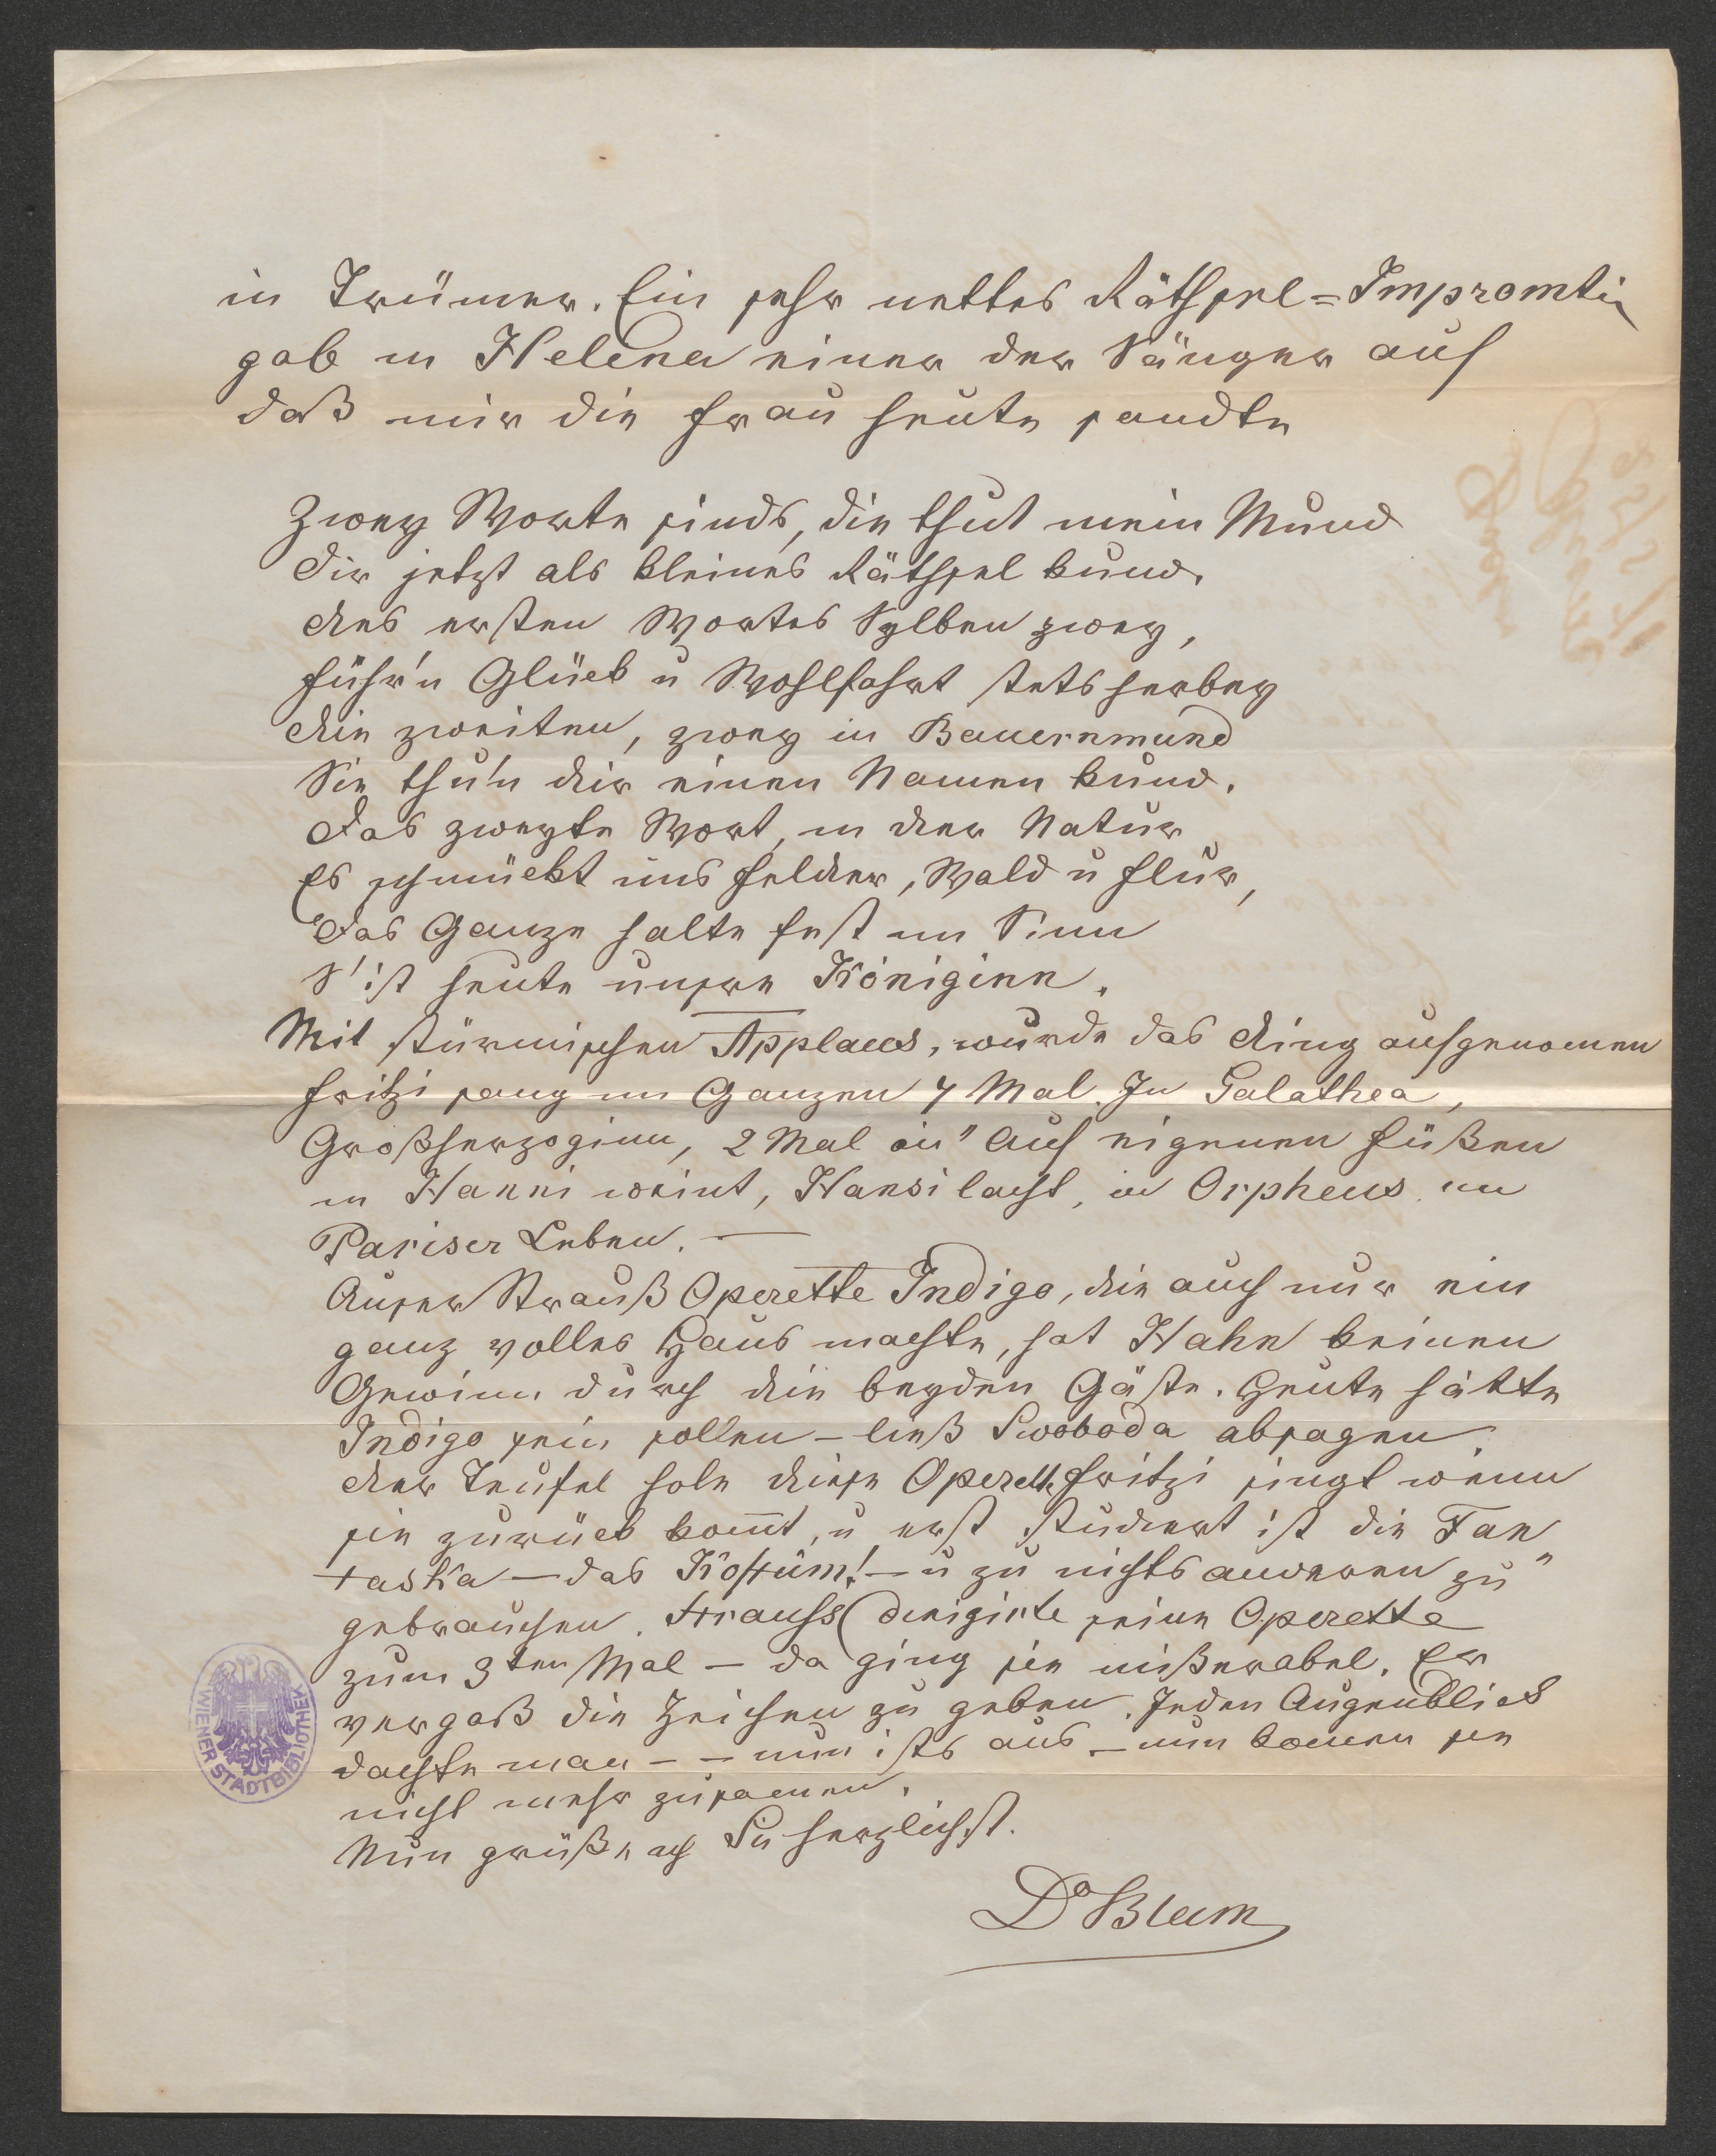 in Trümer. Ein sehr nettes Räthsel=Impromtü
gab in Helena einer der Sänger auf
daß mir die Frau heute sandte
Zwey Worte sinds, die thut mein Mund
Dir jetzt als kleines Räthsel kund.
Des ersten Wortes Sylben zwey,
führ'n Glück u Wohlfahrt stets herbey
Die zweiten, zwey in Bauernmund
Sie thu'n dir einen Namen kund.
Das zweyte Wort, in der Natur
Es schmückt uns Felder, Wald u Flur,
Das Ganze halte fest im Sinn
S' ist heute unsre Königinn.
Mit stürmischen Applaus, wurde das Ding aufgenomen
Fritzi sang im Ganzen 7 Mal. In Galathea,
Großherzoginn, 2 Mal in "Auf eigenen Füßen
in Hanni weint, Hansi lacht, in Orpheus im
Pariser Leben. —
Auser Strauß Operette Indigo, die auch nur ein
ganz volles Haus machte, hat Hahn keinen
Gewinn durch die beyden Gäste. Heute hätte
Indigo sein sollen – ließ Swoboda absagen.
Der Teufel hole diese Operette Fritzi singt wenn
sie zurück kommt, u erst studiert ist die Fan
taska – das Kostüm! – u zu nichts anderen zu"
gebrauchen. Strauss dirigirte seine Operette
zum 3ten Mal – da ging sie mißerabel. Er
vergaß die Zeichen zu geben. Jeden Augenblick
dachte man – – nun ists aus – nun komen sie
nicht mehr zusamen.
Nun grüße ich Sie herzlichst.
Dr Blum
WIENER STADTBIBLIOTHEK